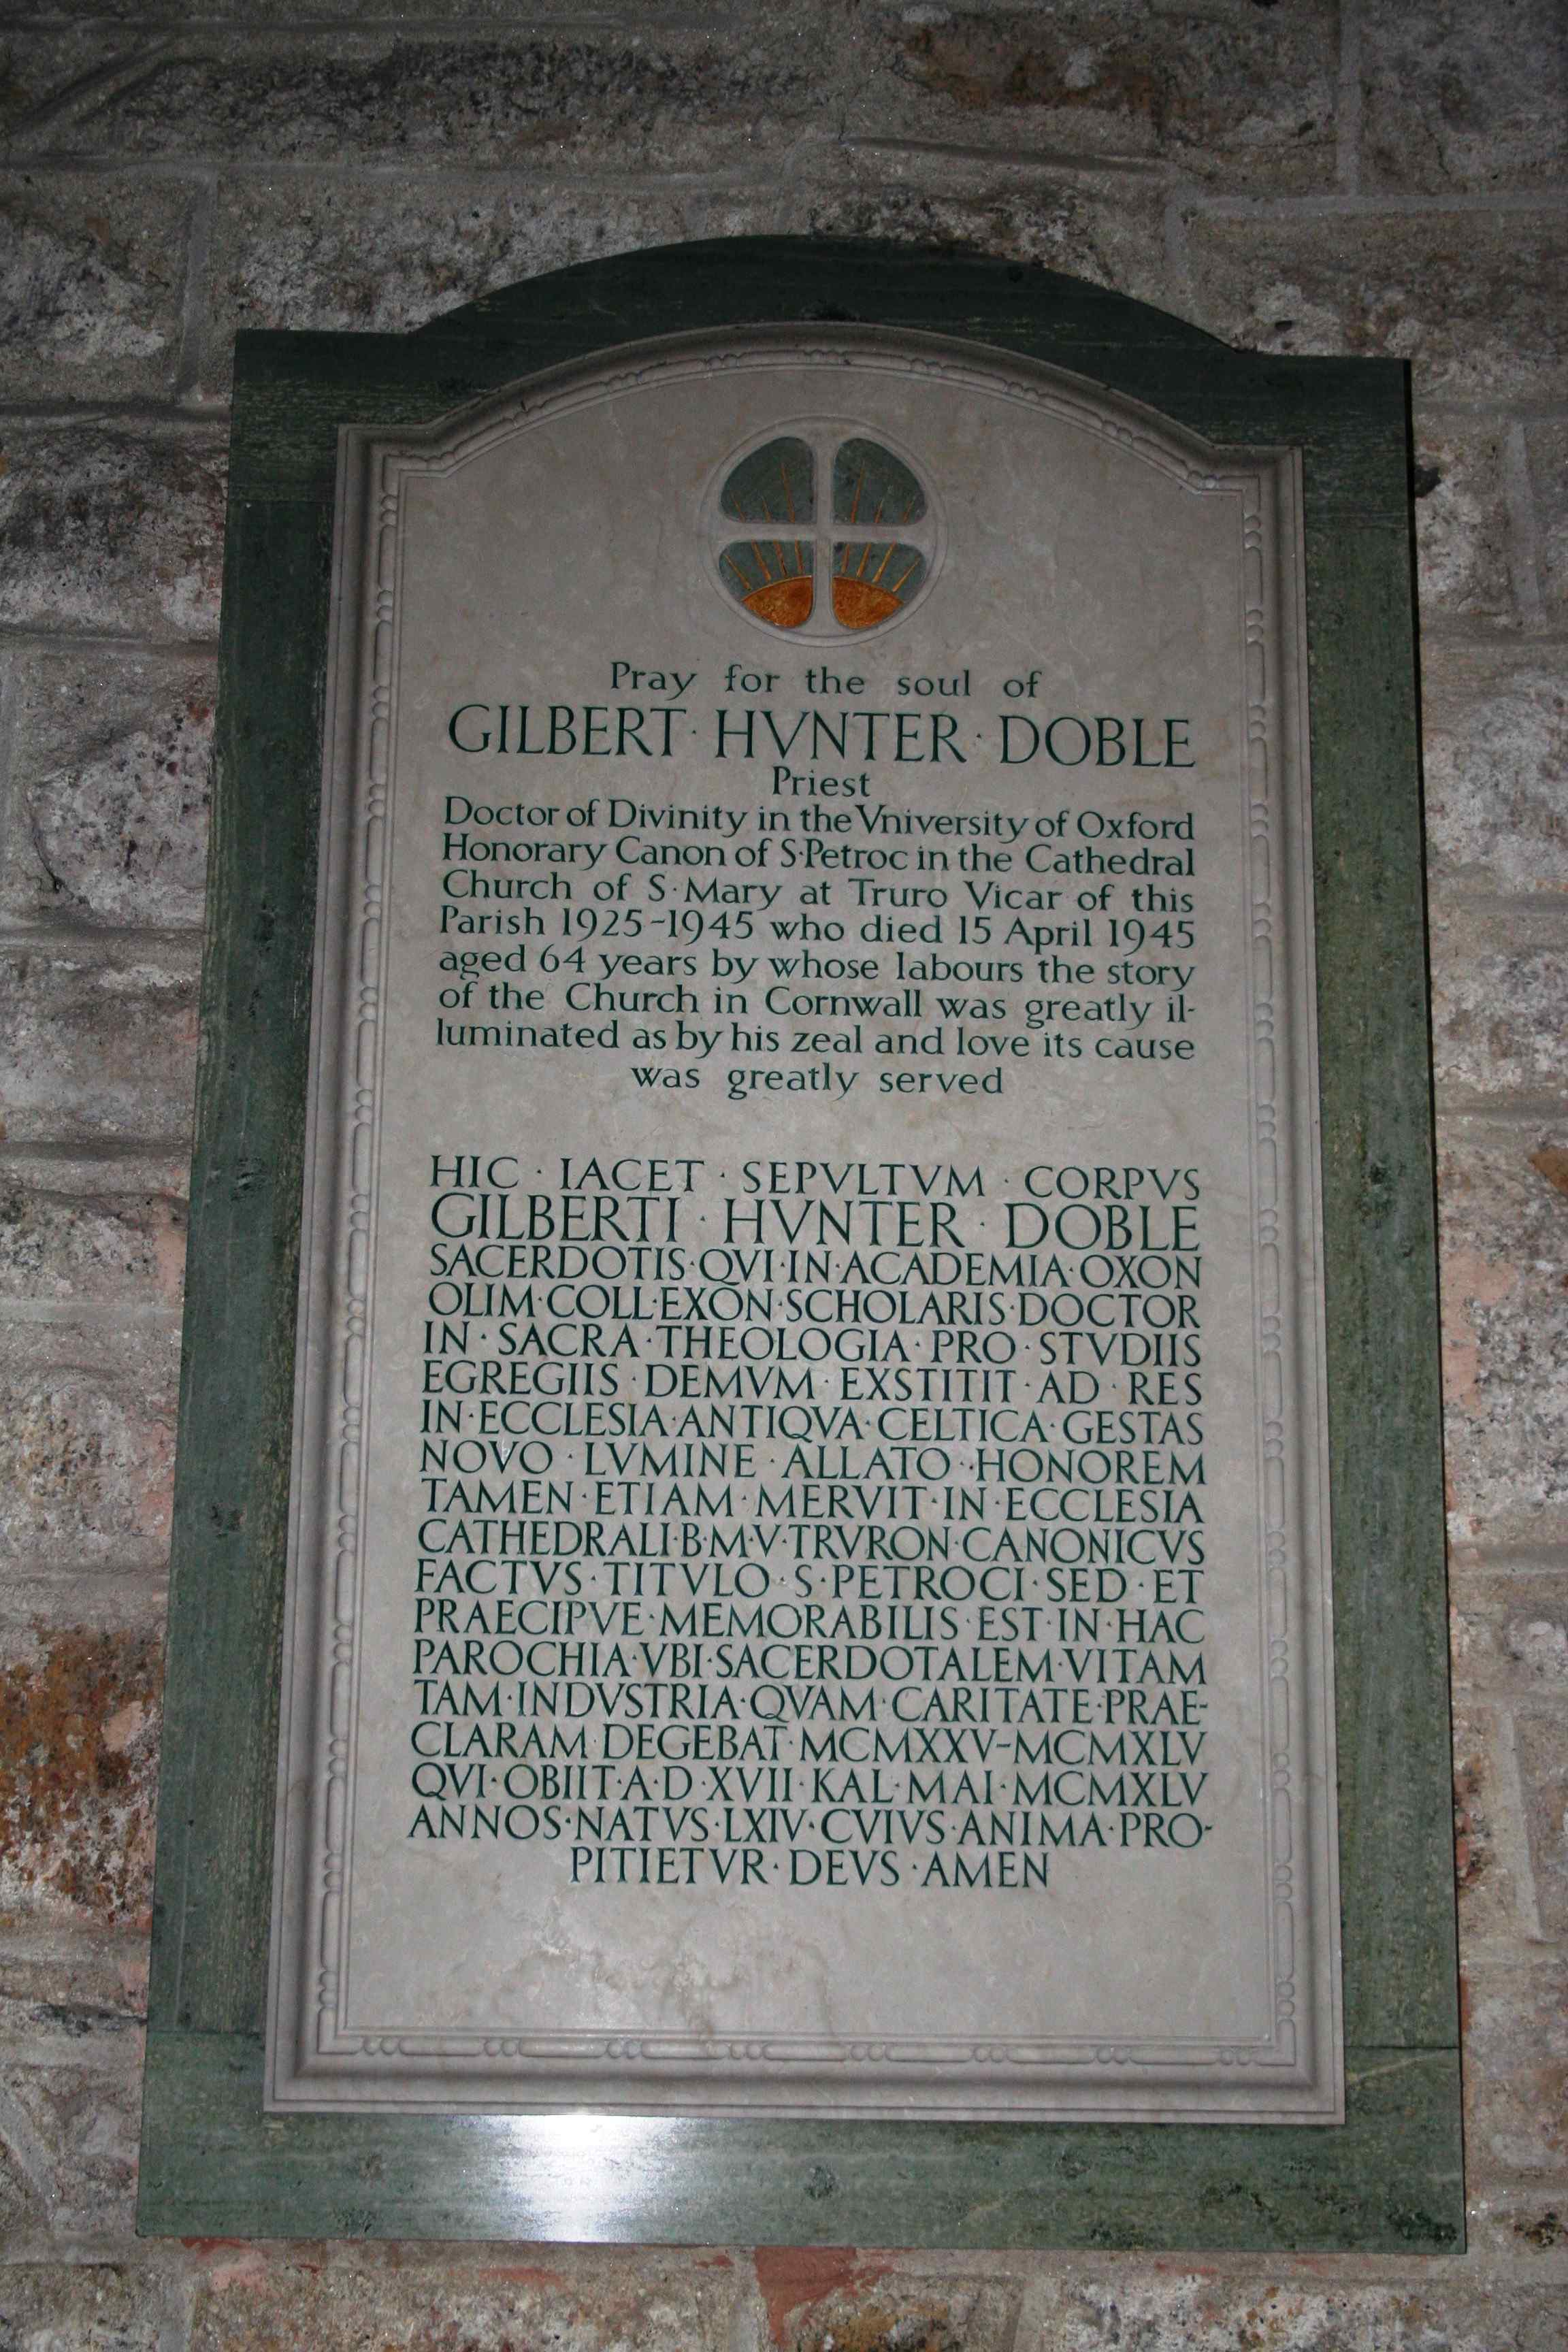 Pray for the soul of
GILBERT · HVNTER · DOBLE
Priest
Doctor of Divinity in the Vniversity of Oxford
Honorary Canon of S·Petroc in the Cathedral
Church of S·Mary at Truro Vicar of this
Parish 1925-1945 who died 15 April 1945
aged 64 years by whose labours the story
of the Church in Cornwall was greatly il-
luminated as by his zeal and love its cause
was greatly served
HIC · IACET · SEPVLTVM · CORPVS
GILBERTI · HVNTER · DOBLE
SACERDOTIS·QVI·IN·ACADEMIA·OXON
OLIM·COLL·EXON·SCHOLARIS·DOCTOR
IN·SACRA·THEOLOGIA·PRO·STVDIIS
EGREGIIS·DEMVM·EXSTITIT·AD·RES
IN·ECCLESIA·ANTIQVA·CELTICA·GESTAS
NOVO·LVMINE·ALLATO·HONOREM
TAMEN·ETIAM·MERVIT·IN·ECCLESIA
CATHEDRALI·B·M·V·TRVRON·CANONICVS
FACTVS·TITVLO·S·PETROCI·SED·ET
PRAECIPVE·MEMORABILIS·EST·IN·HAC
PAROCHIA·VBI·SACERDOTALEM·VITAM
TAM·INDVSTRIA·QVAM·CARITATE·PRAE-
CLARAM·DEGEBAT·MCMXXV-MCMXLV
QVI·OBIIT·A·D·XVII·KAL·MAI·MCMXLV
ANNOS·NATVS·LXIV·CVIVS·ANIMA·PRO-
PITIETVR·DEVS·AMEN